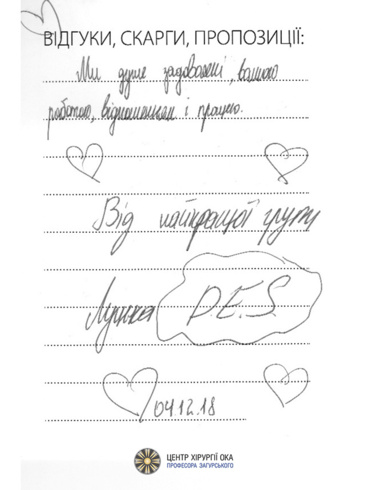 ВІДГУКИ, СКАРГИ, ПРОПОЗИЦІЇ:
Ми дуже задоволені, вашою
роботою, відношенням і працею.
Від найкращої групи
D.E.S.
04.12.18
ЦЕНТР ХІРУРГІЇ ОКА
ПРОФЕСОРА ЗАГУРСЬКОГО